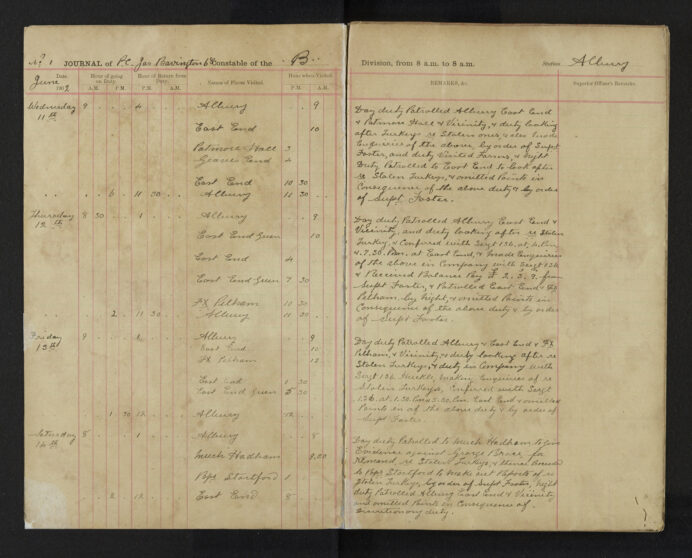 No 1 JOURNAL of P.C. Jas Bavington 68 Constable of the "B"
Date. Hour of going on Duty. Hour of Return from Duty. Names of Places Visited. Hour when Visited.
June 1902 A.M. P.M. P.M. A.M. P.M. A.M.
Wednesday 11th 9 4 Albury 9
East End 10
Patmore Hall 3
Gravel End 4
East End 10 30
6 11 30 Albury 11 30
Thursday 12th 8 30 1 Albury 9
East End Green 10
East End 4
East End Green 7 30
Fx Pelham 10 30
2 11 30 Albury 11 30
Friday 13th 9 Albury 9
East End 10
Fx Pelham 12
East End 1 30
East End Green 5 30
1 30 12 Albury 12
Saturday 14th 8 1 Albury 8
Much Hadham 9.00
Bps Stortford 1
2 12 East End 8
Division, from 8 a.m. to 8 a.m. Station Albury
REMARKS, &c. Superior Officer's Remarks.
Day duty Patrolled Albury East End
& Patmore Hall & Vicinity, & duty looking
after Turkeys re Stolen ones, & also made
Enquiries of the above, by order of Supt
Foster, and duty Visited Farms, & night
Duty Patrolled to East End to look after
re Stolen Turkeys, & omitted Points in
Consequence of the above duty & by order
of Supt Foster.
Day duty Patrolled Albury East End &
Vicinity, and duty looking after re Stolen
Turkey, & Conferred with Sergt 136. at 4. P.m.
& 7.30. P.m. at East End, & made Enquiries
of the above in Company with Sergt 136
& Received Balance Pay £ 2. 3. 9. from
Supt Foster, & Patrolled East End & Fx
Pelham by Night, & omitted Points in
Consequence of the above duty & by order
of Supt Foster.
Day duty Patrolled Albury & East End & Fx
Pelham, & Vicinity, & duty looking after re
Stolen Turkeys, & duty in Company with
Sergt 136 making Enquiries of re
Stolen Turkeys, Conferred with Sergt
136. at 1.30. P.m. & 5.30. P.m. East End & omitted
Points in of the above duty & by order of
Supt Foster.
Day duty Patrolled to Much Hadham to give
Evidence against George Brace for
Remand, re Stolen Turkeys, & thence
to Bps Stortford to make out Reports of re
Stolen Turkeys, by order of Supt Foster, Night
duty Patrolled Albury East End & Vicinity
and omitted Points in Consequence of
discretionary duty.